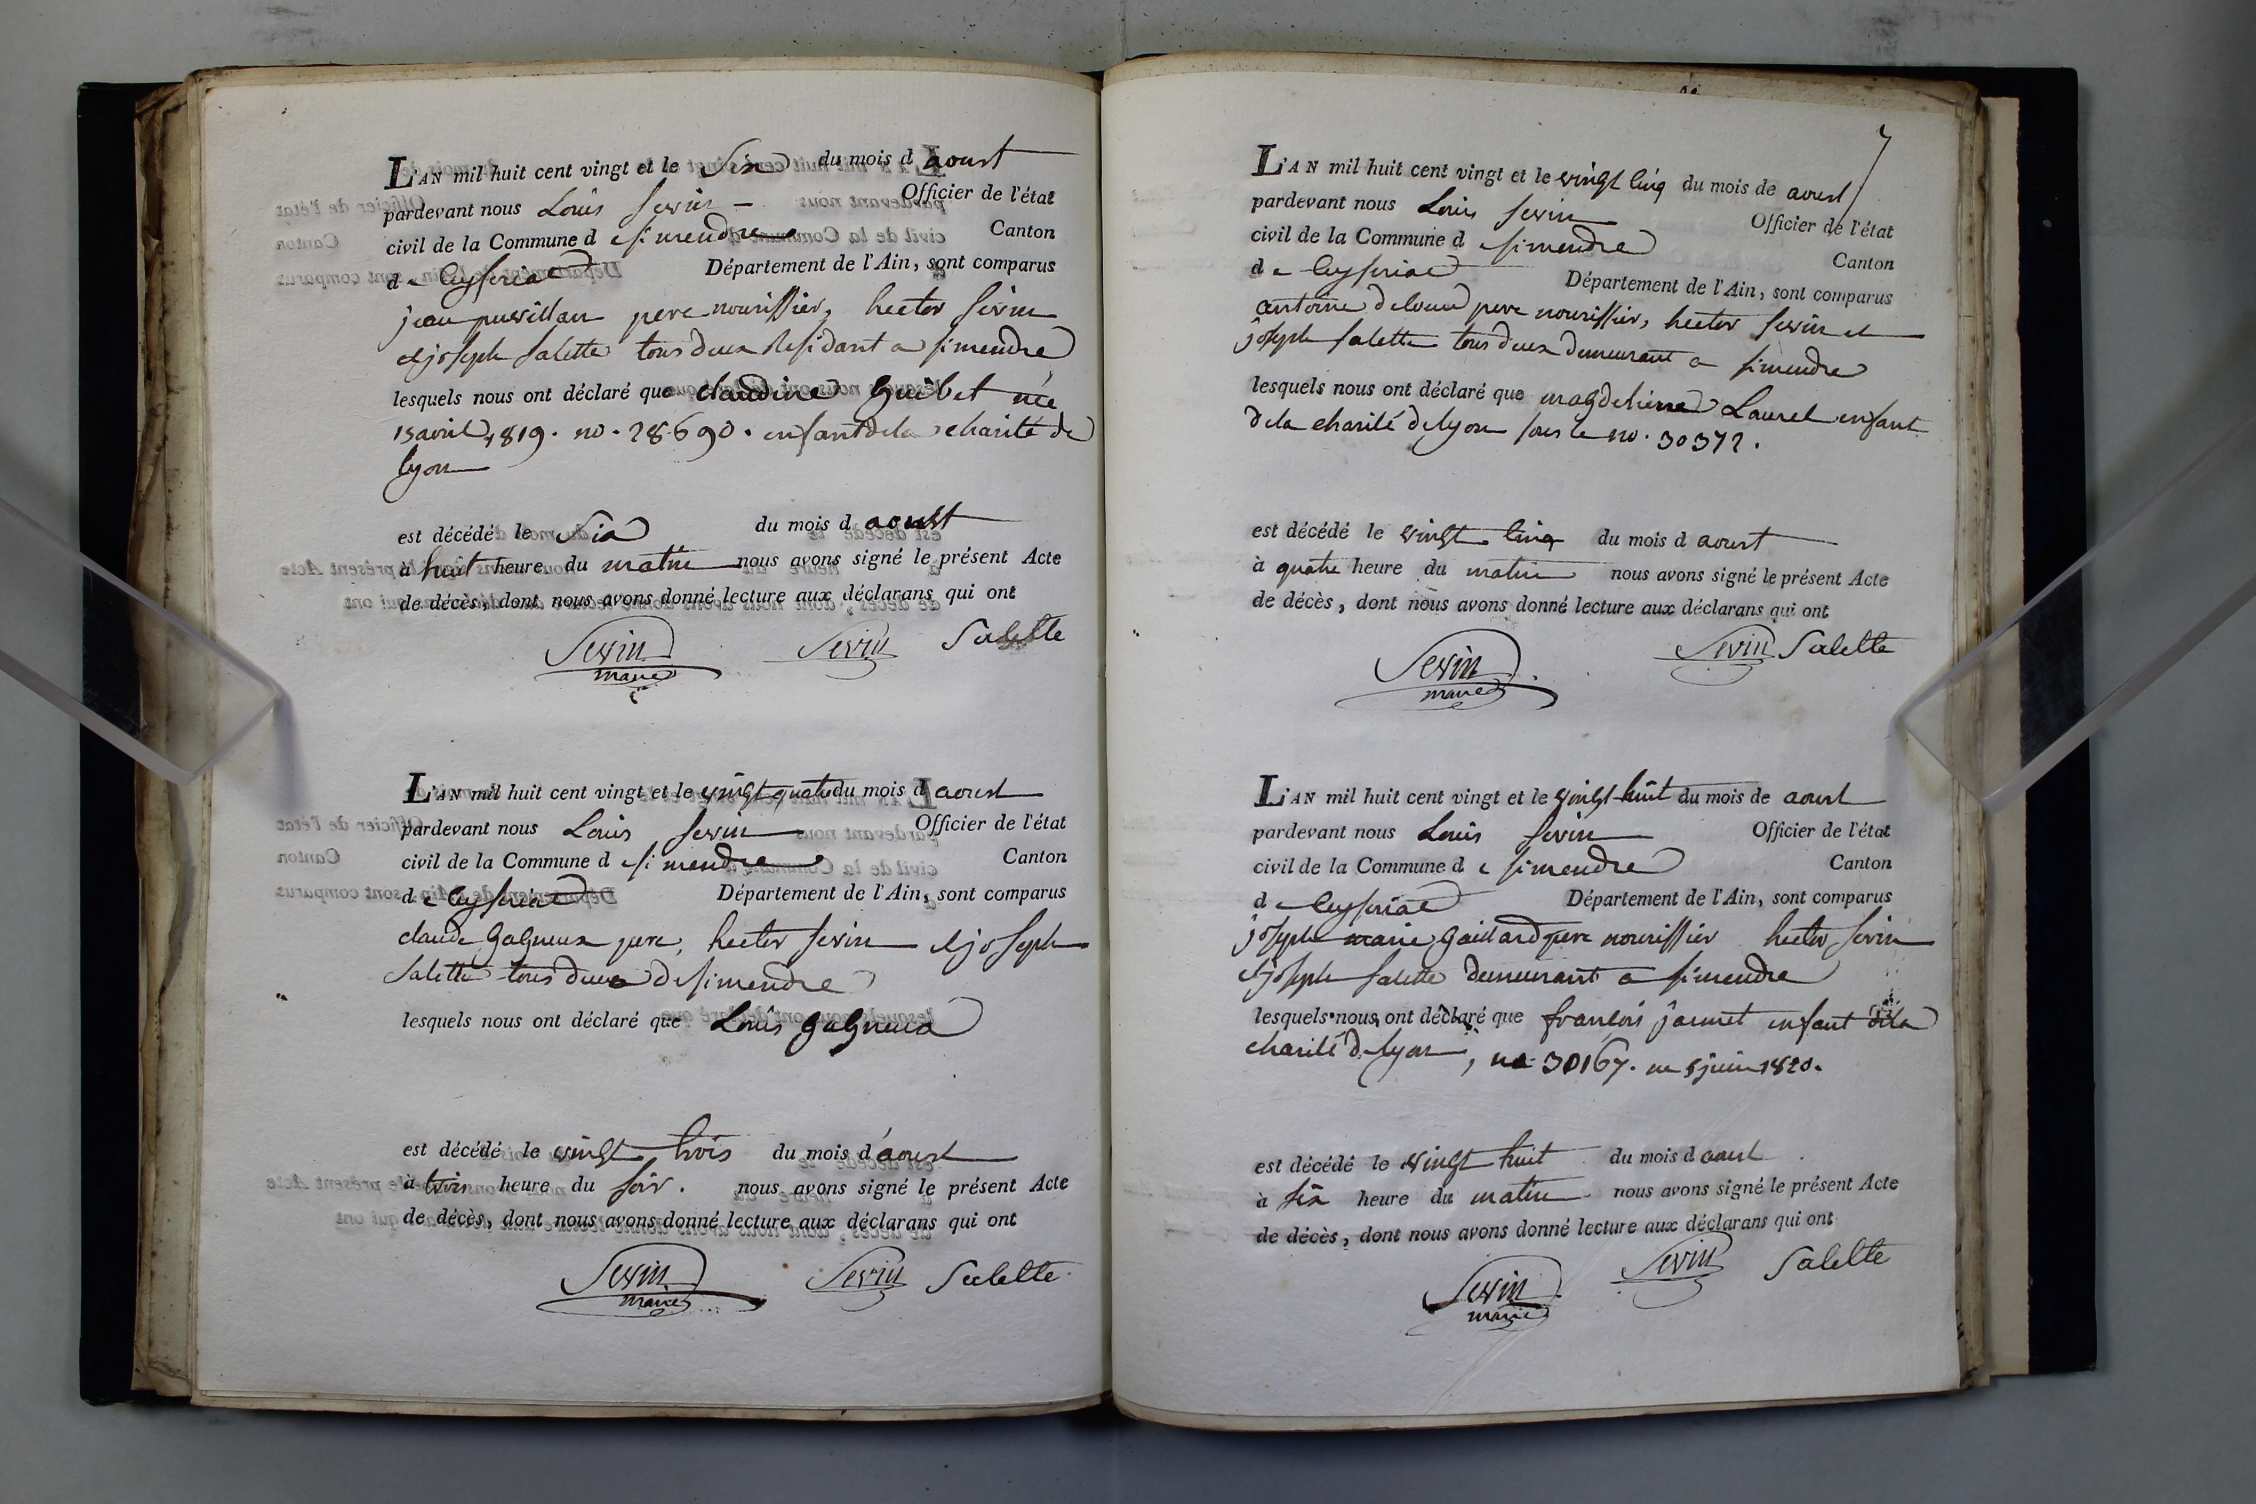 L'AN mil huit cent vingt et le Six du mois d aoust
pardevant nous Louis Sevin Officier de l'état
civil de la Commune d e Simendre Canton
d e Ceyseriat Département de l'Ain, sont comparus
jean puvillan pere nourissier, hector Sevin
et joseph Salette tous deux Residant a Simendre
lesquels nous ont déclaré que claudine Guibet née
15 avril 1819. no. 28690. enfant de la charité de
lyon
est décédé le Six du mois d aoust
à huit heure du matin nous avons signé le présent Acte
de décès, dont nous avons donné lecture aux déclarans qui ont
Sevin Sevin Salette
maire
L'AN mil huit cent vingt et le vingt quatre du mois d aoust
pardevant nous Louis Sevin Officier de l'état
civil de la Commune d e Simendre Canton
d e Ceyseriat Département de l'Ain, sont comparus
claude Gagneux pere, hector Sevin et joseph
Salette tous deux de Simendre
lesquels nous ont déclaré que Louis Gagneux
est décédé le vingt trois du mois d'aoust
à trois heure du soir. nous avons signé le présent Acte
de décès, dont nous avons donné lecture aux déclarans qui ont
Sevin Sevin Salette
maire
7
L'AN mil huit cent vingt et le vingt cinq du mois de aoust
pardevant nous Louis Sevin Officier de l'état
civil de la Commune d e Simendre Canton
d e Ceyseriat Département de l'Ain, sont comparus
antoine pere nourissier, hector Sevin et
joseph Salette tous deux demeurant a Simendre
lesquels nous ont déclaré que magdeleine Laurel enfant
de la charité de lyon sous le no. 30372.
est décédé le vingt cinq du mois d aoust
à quatre heure du matin nous avons signé le présent Acte
de décès, dont nous avons donné lecture aux déclarans qui ont
Sevin Sevin Salette
maire
L'AN mil huit cent vingt et le vingt huit du mois de aoust
pardevant nous Louis Sevin Officier de l'état
civil de la Commune d e Simendre Canton
d e Ceyseriat Département de l'Ain, sont comparus
joseph marie Gaillard pere nourissier hector Sevin
et joseph Salette demeurant a Simendre
lesquels nous ont déclaré que francois jaunet enfant de la
charité de lyon, no 30167. ne 5 juin 1820.
est décédé le vingt huit du mois d aoust
à six heure du matin nous avons signé le présent Acte
de décès, dont nous avons donné lecture aux déclarans qui ont
Sevin Sevin Salette
maire